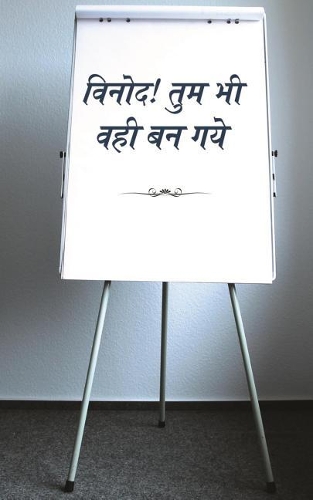 विनोद! तुम भी
वही बन गये